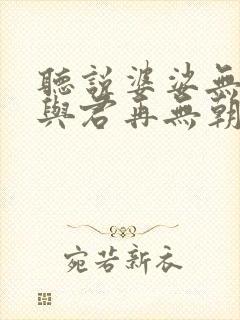 聽說婆娑無
與君再無朝
宛若新衣